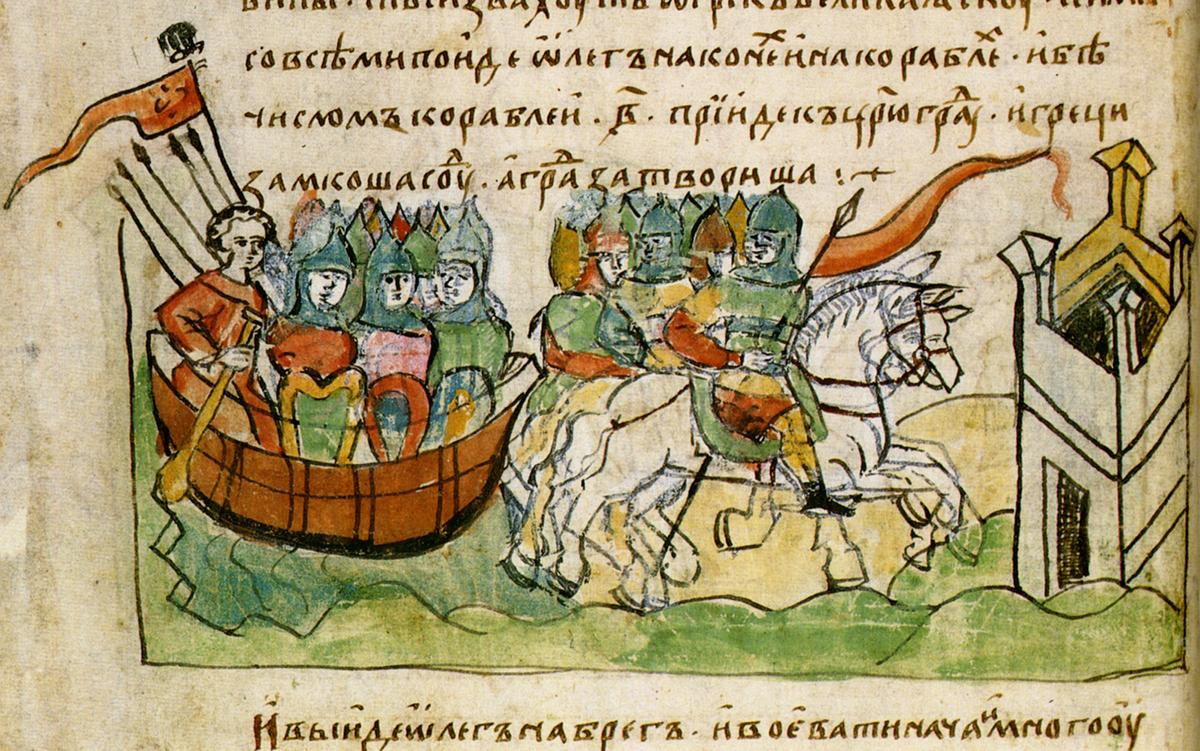 со всѣми поиде ѡлегъ на конеⷯ и на кораблеⷯ · и бѣ
числомъ кораблеи · в҃ · прїиде къ цр҃югра ⷣꙋ · и греци
замкоша соⷣу · а граⷣ затвориша :
И выиде ѡлегъ на брегъ · и воевати нача и много оу